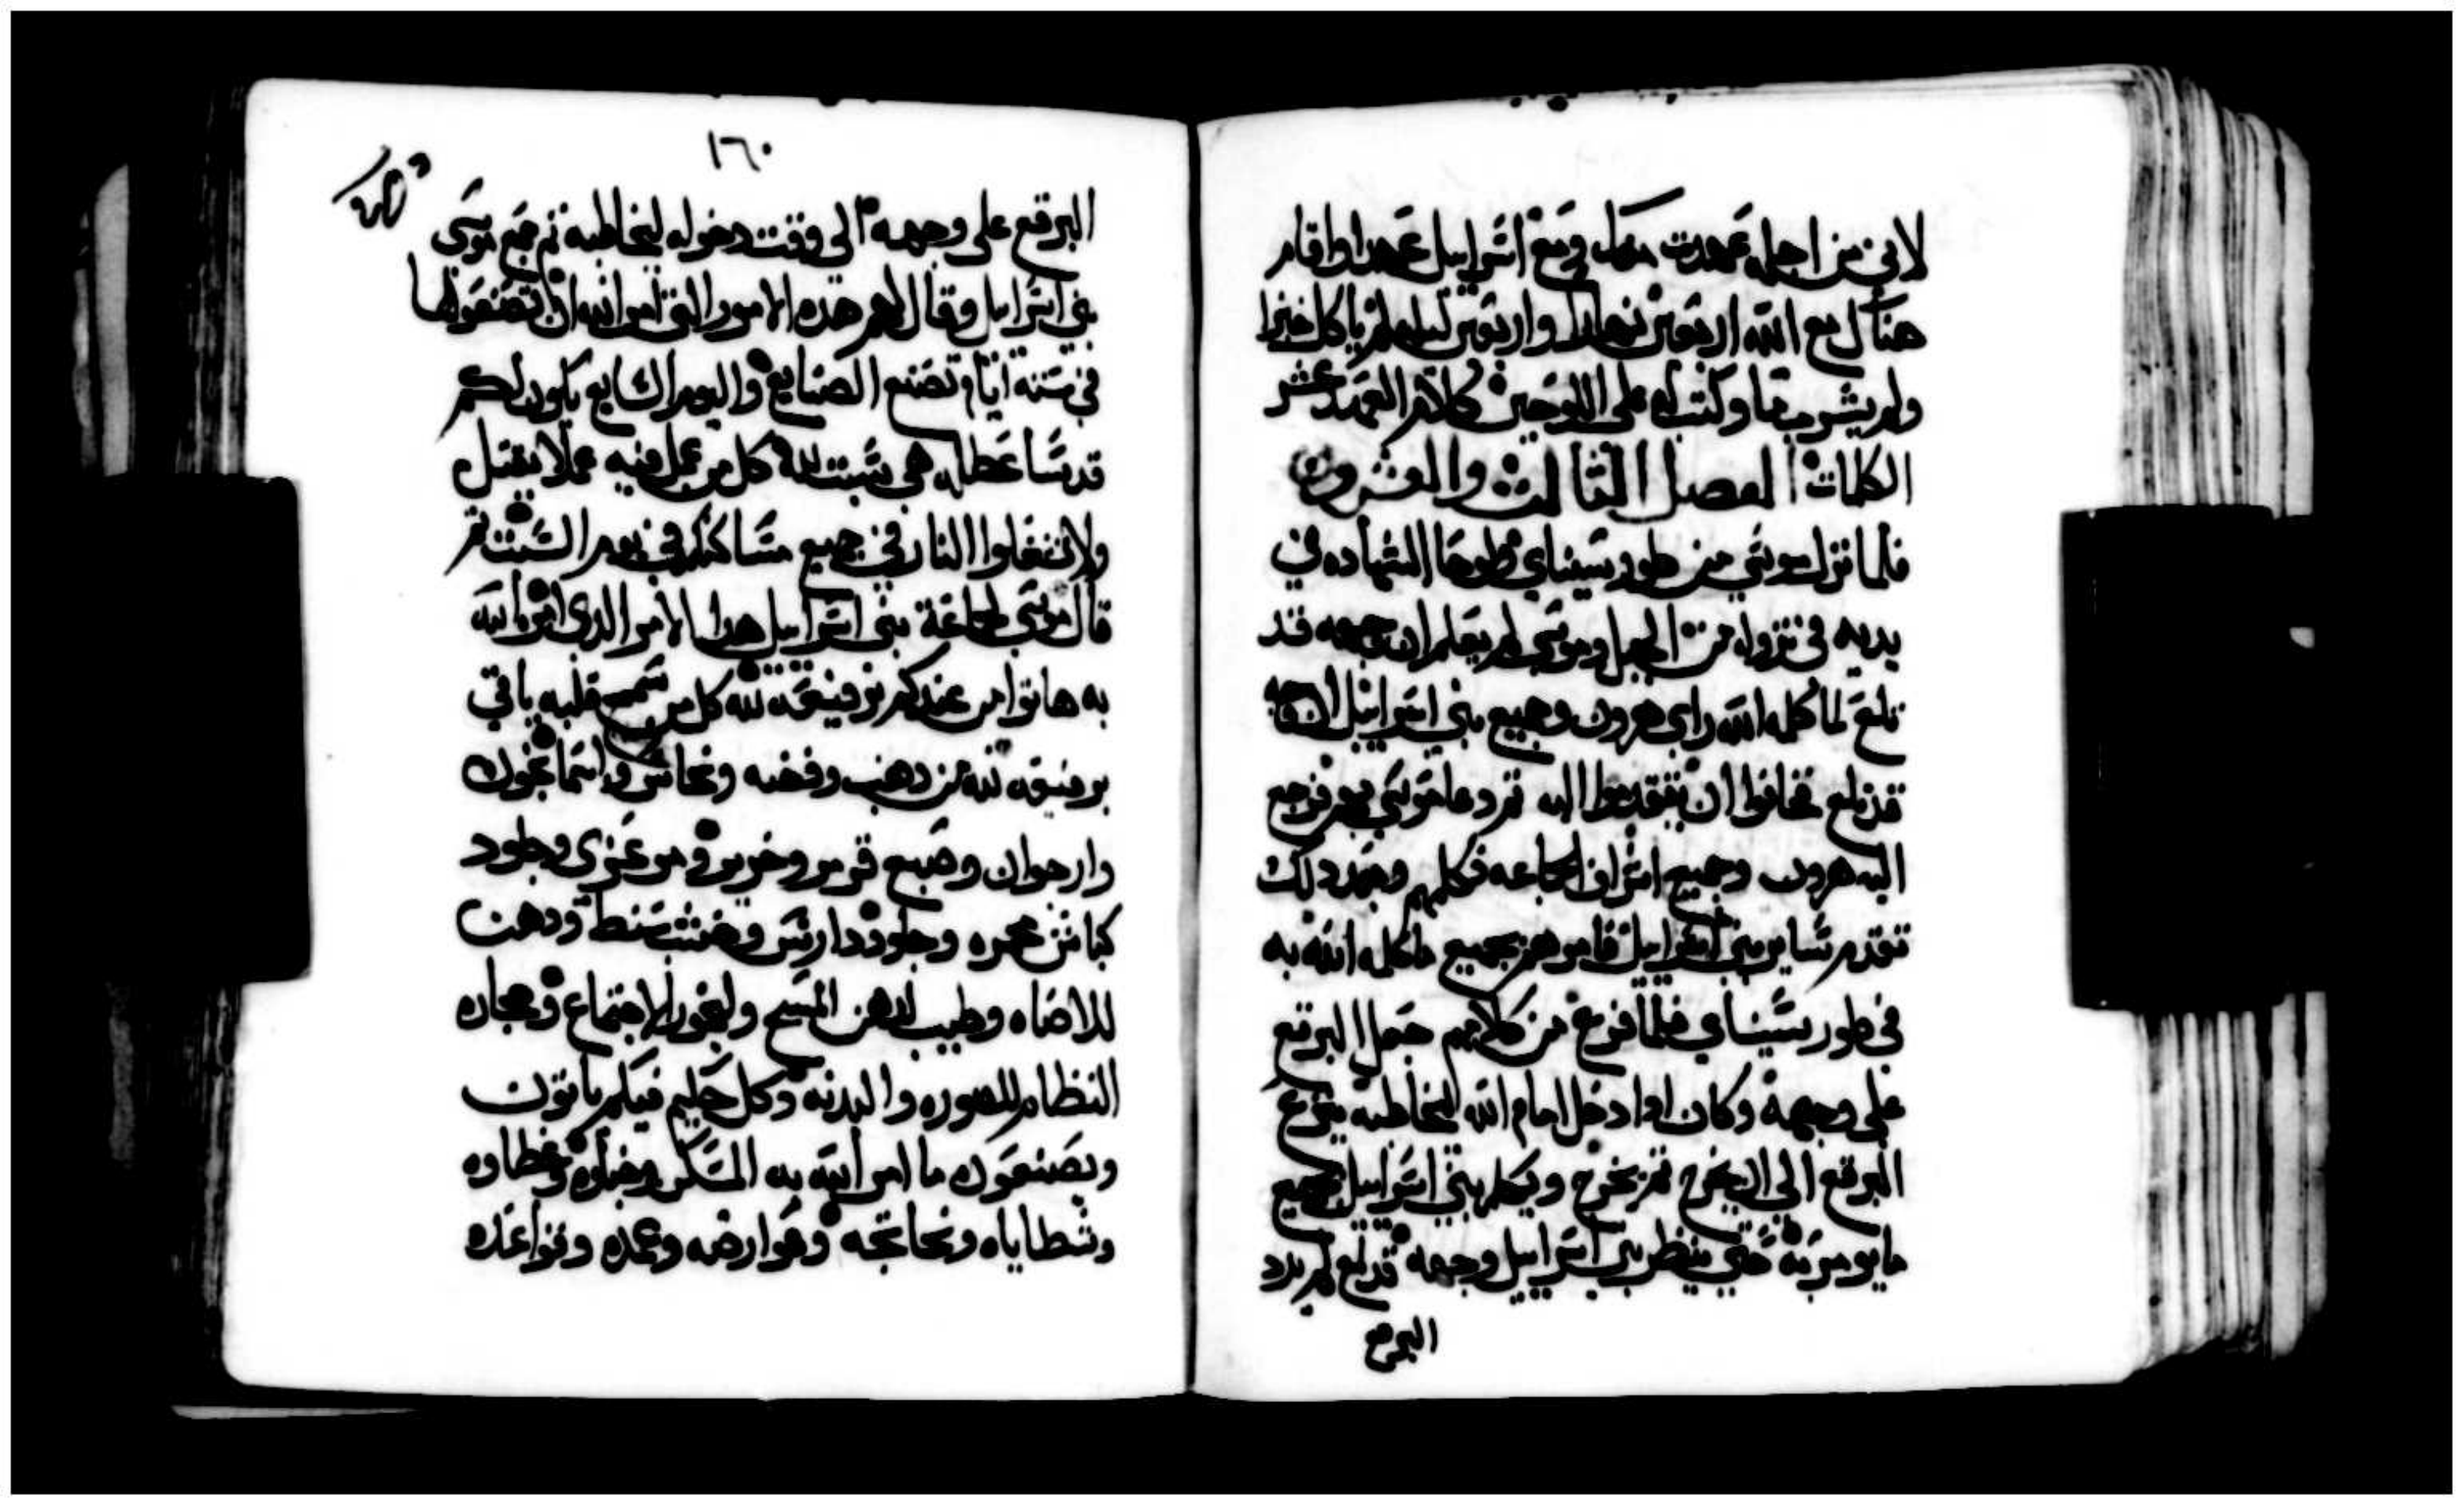 لاني من اجله عهدت معك ومع اسراييل عهدا واقام
هناك مع الله اربعين نهارا واربعين ليله لم ياكل خبزا
ولم يشرب ما وكتب له على اللوحين كلام العهد عشر
الكلمات الفصل الثالث والعشرون
فلما نزل موسي من طور سيناي ولوحا الشهاده في
يديه في نزوله من الجبل وموسي لم يعلم ان وجهه قد
تلمع لما كلمه الله راي هرون وجميع بني اسراييل ان وجهه
قد تلمع فخافوا ان يتقدموا اليه ثم دعا موسي بهم فرجع
اليه هرون وجميع اشراف الجماعه فكلمهم وبعد دلك
تقدم ساير بني اسراييل فامرهم بجميع ما كلمه الله به
في طور سيناي فلما فرغ من كلامهم جعل البرقع
على وجهه وكان ادا دخل امام الله ليخاطبه ينزع
البرقع الى ان يخرج ثم يخرج ويكلم بني اسراييل بجميع
ما يومر به حتي ينظر بني اسراييل وجهه قد لمع ثم يرد
البرقع
١٦٠
البرقع على وجهه الى وقت دخوله ليخاطبه ثم جمع موسى
بني اسراييل وقال لهم هده الامور التي امر الله ان تصنعوها
في ستة ايام تصنع الصنايع واليوم السابع يكون لكم
قدسا عطله هي سبت لله كل من عمل فيه عملا يقتل
ولا تشعلوا النار في جميع مساكنكم في يوم السبت ثم
قال موسي لجماعة بني اسراييل هدا الامر الدي امر الله
به هاتوا من عندكم رفيعه لله كل من سمح قلبه ياتي
برفيعه لله من دهب وفضه ونحاس واسمانجون
وارجوان وصبغ قرمز وخرير ومرعزي وجلود
كباش محمره وجلود دارش وخشب سنط ودهن
للاضاه وطيب لدهن المسح ولبخور الاجتماع وحجاره
النظام للصوره والبدنه وكل حكيم فيكم ياتون
ويصنعون ما امر الله به المسكن وخباوه وغطاوه
وشطاياه وتحاتجه وعوارضه وعمده وقواعده